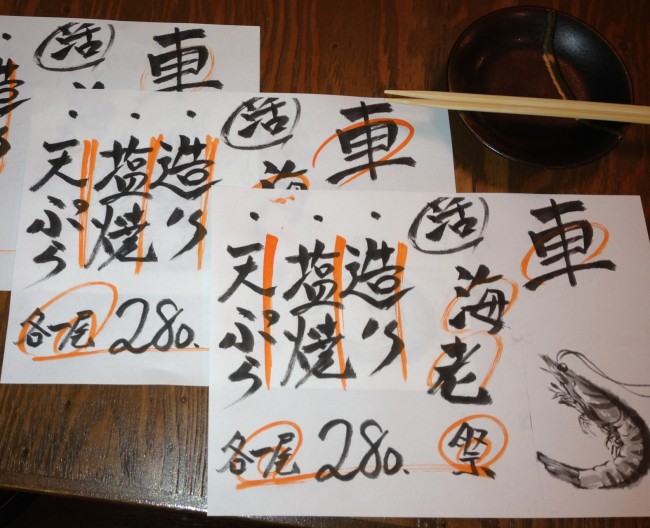 車
活海老祭
・造り
・塩焼
・天ぷら
各一尾 280.
車
活海
・造り
・塩焼
・天ぷら
各一尾 280.
車
活
造り